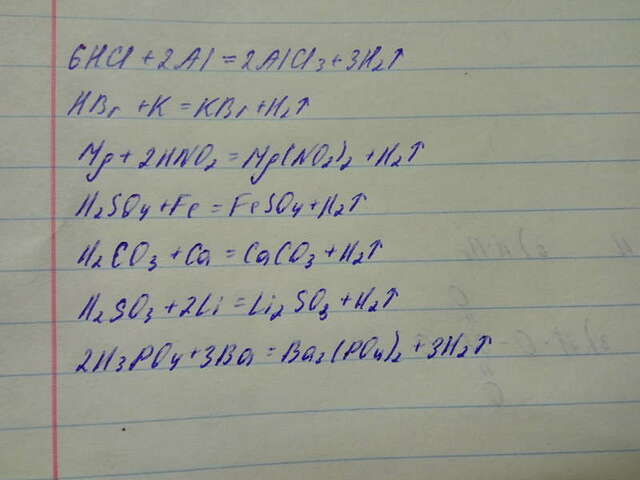 6HCl + 2Al = 2AlCl3 + 3H2↑
HBr + K = KBr + H2↑
Mg + 2HNO2 = Mg(NO2)2 + H2↑
H2SO4 + Fe = FeSO4 + H2↑
H2CO3 + Ca = CaCO3 + H2↑
H2SO3 + 2Li = Li2SO3 + H2↑
2H3PO4 + 3Ba = Ba3(PO4)2 + 3H2↑